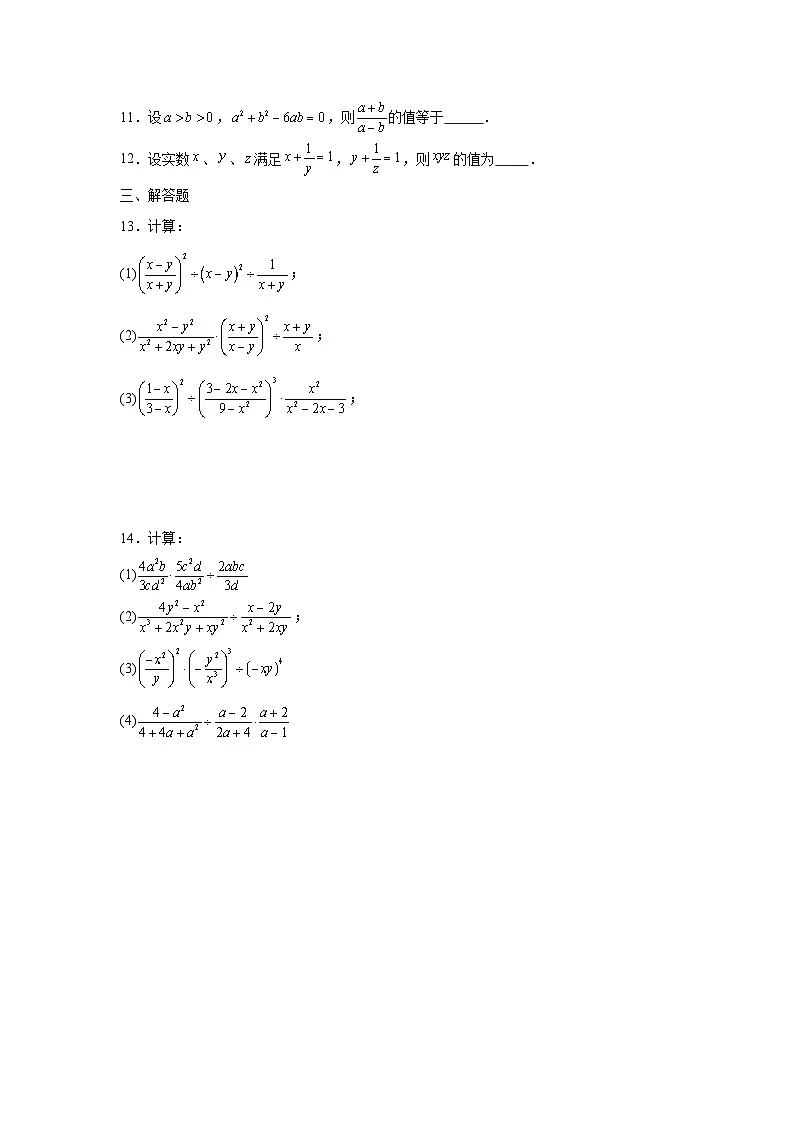 11．设$a>b>0$，$a^2+b^2-6ab=0$，则$\frac{a+b}{a-b}$的值等于_____．
12．设实数$x$、$y$、$z$满足$x+\frac{1}{y}=1$，$y+\frac{1}{z}=1$，则$xyz$的值为____．
三、解答题
13．计算：
(1)$\left(\frac{x-y}{x+y}\right)^2\div(x-y)^2\div\frac{1}{x+y}$；
(2)$\frac{x^2-y^2}{x^2+2xy+y^2}\cdot\left(\frac{x+y}{x-y}\right)^2\div\frac{x+y}{x}$；
(3)$\left(\frac{1-x}{3-x}\right)^2\div\left(\frac{3-2x-x^2}{9-x^2}\right)^3\cdot\frac{x^2}{x^2-2x-3}$；
14．计算：
(1)$\frac{4a^2b}{3cd^2}\cdot\frac{5c^2d}{4ab^2}\div\frac{2abc}{3d}$
(2)$\frac{4y^2-x^2}{x^3+2x^2y+xy^2}\div\frac{x-2y}{x^2+2xy}$；
(3)$\left(\frac{-x^2}{y}\right)^2\cdot\left(-\frac{y^2}{x^3}\right)^3\div(-xy)^4$
(4)$\frac{4-a^2}{4+4a+a^2}\div\frac{a-2}{2a+4}\cdot\frac{a+2}{a-1}$